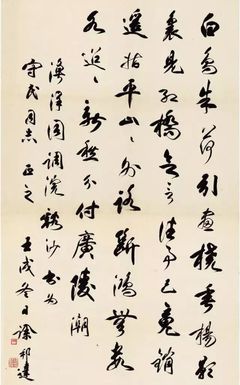 白鳥朱荷引畫橈垂楊影
裏見紅橋欲尋往事已魂銷
遥指平山山外路断鴻無數
水迢迢新愁分付廣陵潮
漁洋調浣谿沙書為
守民同志正之壬戌冬日徐邦達